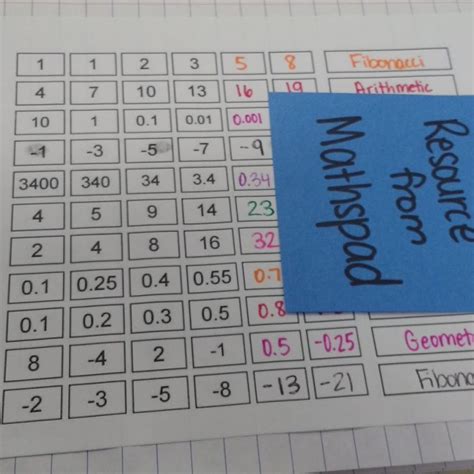 1 1 2 3 5 8 Fibonacci
4 7 10 13 16 19 Arithmetic
10 1 0.1 0.01 0.001
-1 -3 -5 -7 -9
3400 340 34 3.4 0.34
4 5 9 14 23
2 4 8 16 32
0.1 0.25 0.4 0.55 0.7
0.1 0.2 0.3 0.5 0.8
8 -4 2 -1 0.5 -0.25 Geomet
-2 -3 -5 -8 -13 -21 Fibona
Resource
from
Mathspad